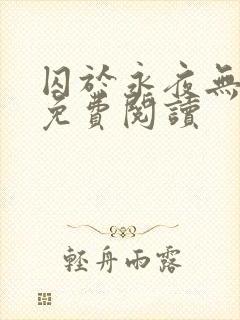 囚於永夜無
免費閱讀
輕舟雨露